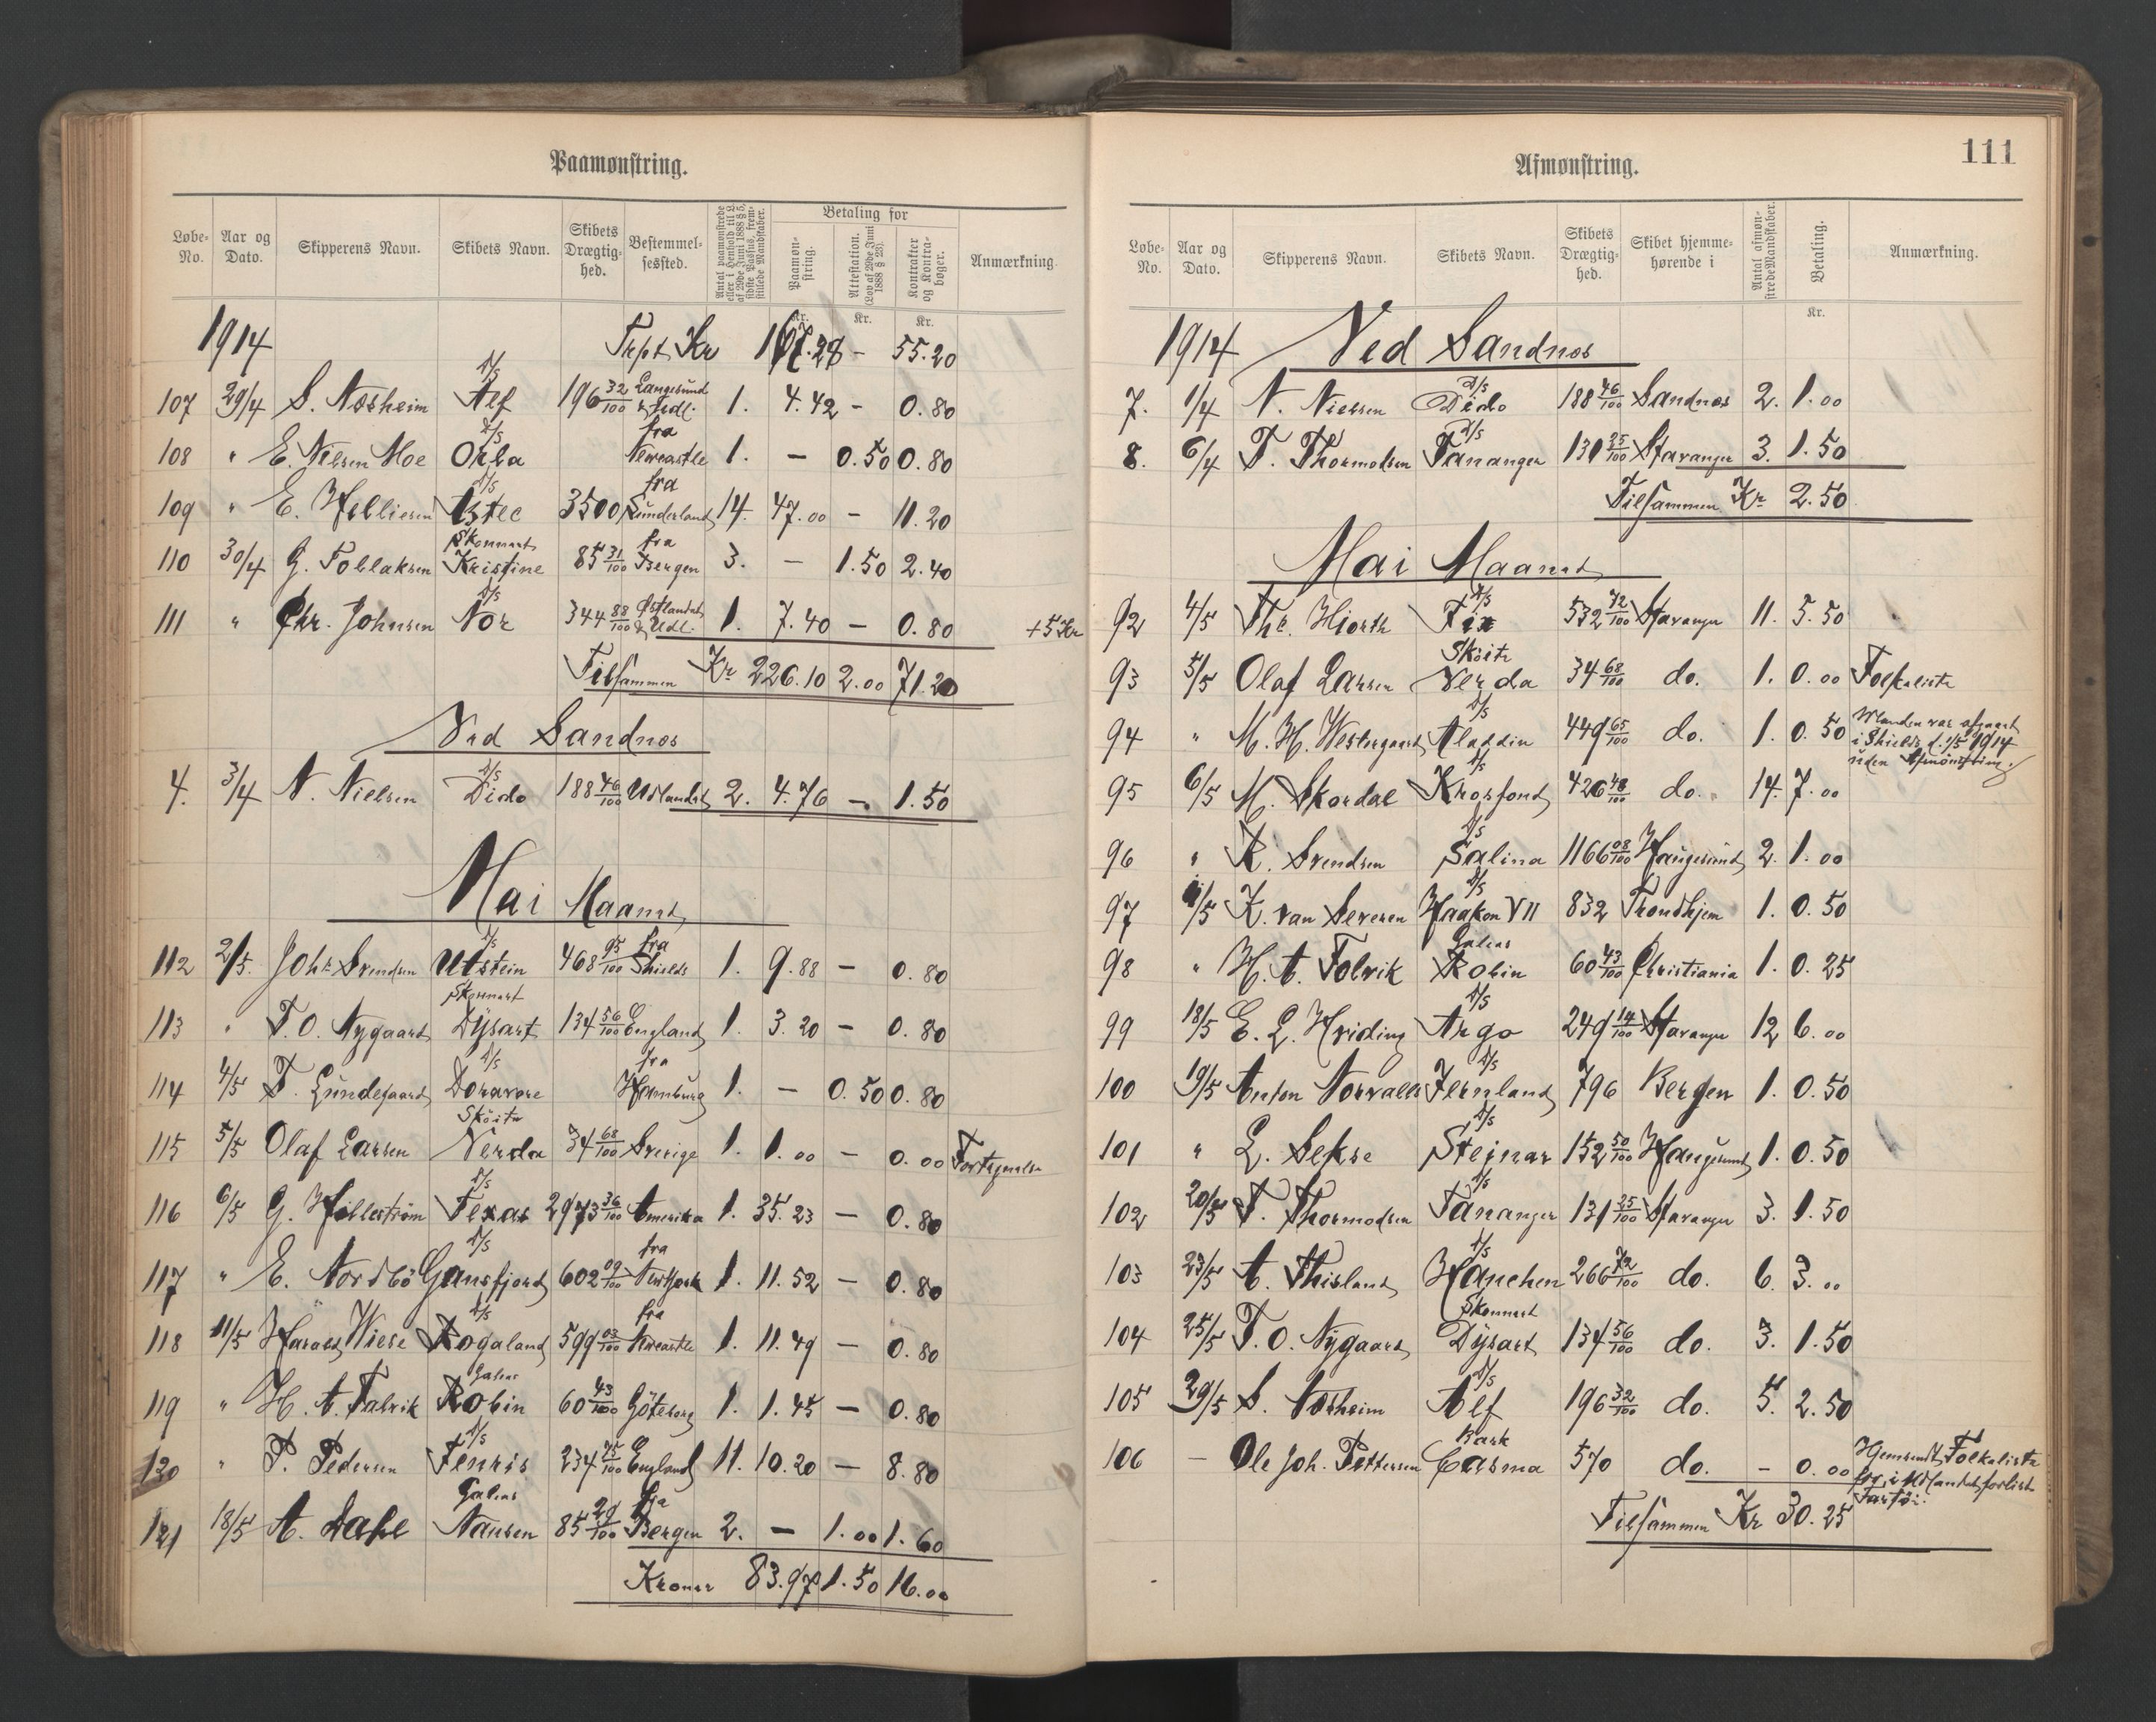 Paamønstring.
Løbe-No. Aar og Dato. Skipperens Navn. Skibets Navn. Skibets Drægtighed. Bestemmelsessted. Antal paamønstrede eller i Henhold til L. af 29de Juni 1888 § 5, sidste Passus, fremstillede Mandskaber. Betaling for Paamønstring. Attestation. (Lov af 29de Juni 1888 § 23). Kontrakter og Kontrabøger. Anmærkning.
Kr. Kr. Kr.
1914 Trpt. Kr 55.20
107 29/4 S. Næsheim D/S Alf 196 32/100 Langesund & Udl. 1. 4.42 – 0.80
108 " E. Nielsen Moe D/S Orla fra Newcastle 1. – 0.50 0.80
109 " E. D/S 3500 fra Sunderland 14. 47.00 – 11.20
110 30/4 G. Tollaksen Skonnert Kristine 85 31/100 fra Bergen 3. – 1.50 2.40
111 " Chr. Johnsen D/S Nor 344 88/100 Østlandet & Udl. 1. 7.40 – 0.80 + 5 Kr
Tilsammen Kr 226.10 2.00 71.20
Ved Sandnes
4. 3/4 N. Nielsen D/S Dido 188 46/100 Udlandet 2. 4.76 – 1.50
Mai Maaned
112 2/5. Johs Svendsen D/S Utstein 468 95/100 fra Shields 1. 9.88 – 0.80
113 " T. O. Nygaard Skonnert Dysart 134 56/100 England 1. 3.20 – 0.80
114 4/5 T. Lundegaard D/S Doravore fra Hamburg 1. – 0.50 0.80
115 5/5 Olaf Larsen Skøite Nerda 34 68/100 Sverige 1. 1.00 – 0.00
116 6/5 G. Hillestrøm D/S Texas 2973 36/100 Amerika 1. 35.23 – 0.80
117 " E. Nordbö D/S Gansfjord 602 09/100 fra NewYork 1. 11.52 – 0.80
118 11/5 Harald Wiese D/S Rogaland 599 03/100 fra Newcastle 1. 11.49 – 0.80
119 " H. A. Falvik Galeas Robin 60 43/100 Göteborg 1. 1.45 – 0.80
120 " P. Pedersen D/S Fenris 234 75/100 England 11. 10.20 – 8.80
121 18/5 A. Dahl Galeas Nansen 85 29/100 fra Bergen 2. – 1.00 1.60
Kroner 83.97 1.50 16.00
Afmønstring. 111
Løbe-No. Aar og Dato. Skipperens Navn. Skibets Navn. Skibets Drægtighed. Skibet hjemmehørende i Antal afmønstrede Mandskaber. Betaling. Anmærkning.
Kr.
1914 Ved Sandnes
7. 1/4 N. Nielsen D/S Dido 188 46/100 Sandnes 2. 1.00
8. 6/4 T. Thormodsen D/S Tananger 131 25/100 Stavanger 3. 1.50
Tilsammen Kr 2.50
Mai Maaned
92 4/5 Thr. Hiorth D/S Fix 532 72/100 Stavanger 11. 5.50
93 5/5 Olaf Larsen Skøite Nerda 34 68/100 do. 1. 0.00 Folkeliste
94 " M. H. Westergaard D/S Aladdin 449 65/100 do. 1. 0.50 Manden var afgaaet i Shields d. 1/5 1914 uden Afmønstring.
95 6/5 M. Skordal D/S Krosfond 426 48/100 do. 14. 7.00
96 " K. Svendsen D/S Salina 1166 08/100 Haugesund 2. 1.00
97 11/5 K. van Severen D/S Haakon VII 832 Trondhjem 1. 0.50
98 " H. A. Folvik Galeas Robin 60 43/100 Christiania 1. 0.25
99 18/5 E. L. Hviding D/S Argo 249 14/100 Stavanger 12 6.00
100 19/5 Anton Norvalls D/S Jernland 796 Bergen 1. 0.50
101 " L. Sekse D/S Steinar 152 50/100 Haugesund 1. 0.50
102 20/5 T. Thormodsen D/S Tananger 131 25/100 Stavanger 3. 1.50
103 23/5 A. Thisland D/S Hanchen 266 72/100 do. 6. 3.00
104 25/5 T. O. Nygaard Skonnert Dysart 134 56/100 do. 3. 1.50
105 29/5 S. Næsheim D/S Alf 196 32/100 do. 5. 2.50
106 – Ole Joh. Pettersen Bark Casma 570 do. – 0.00 Hjemsendt Folkeliste fra i Udlandet forlist Fartøi.
Tilsammen Kr 30.25